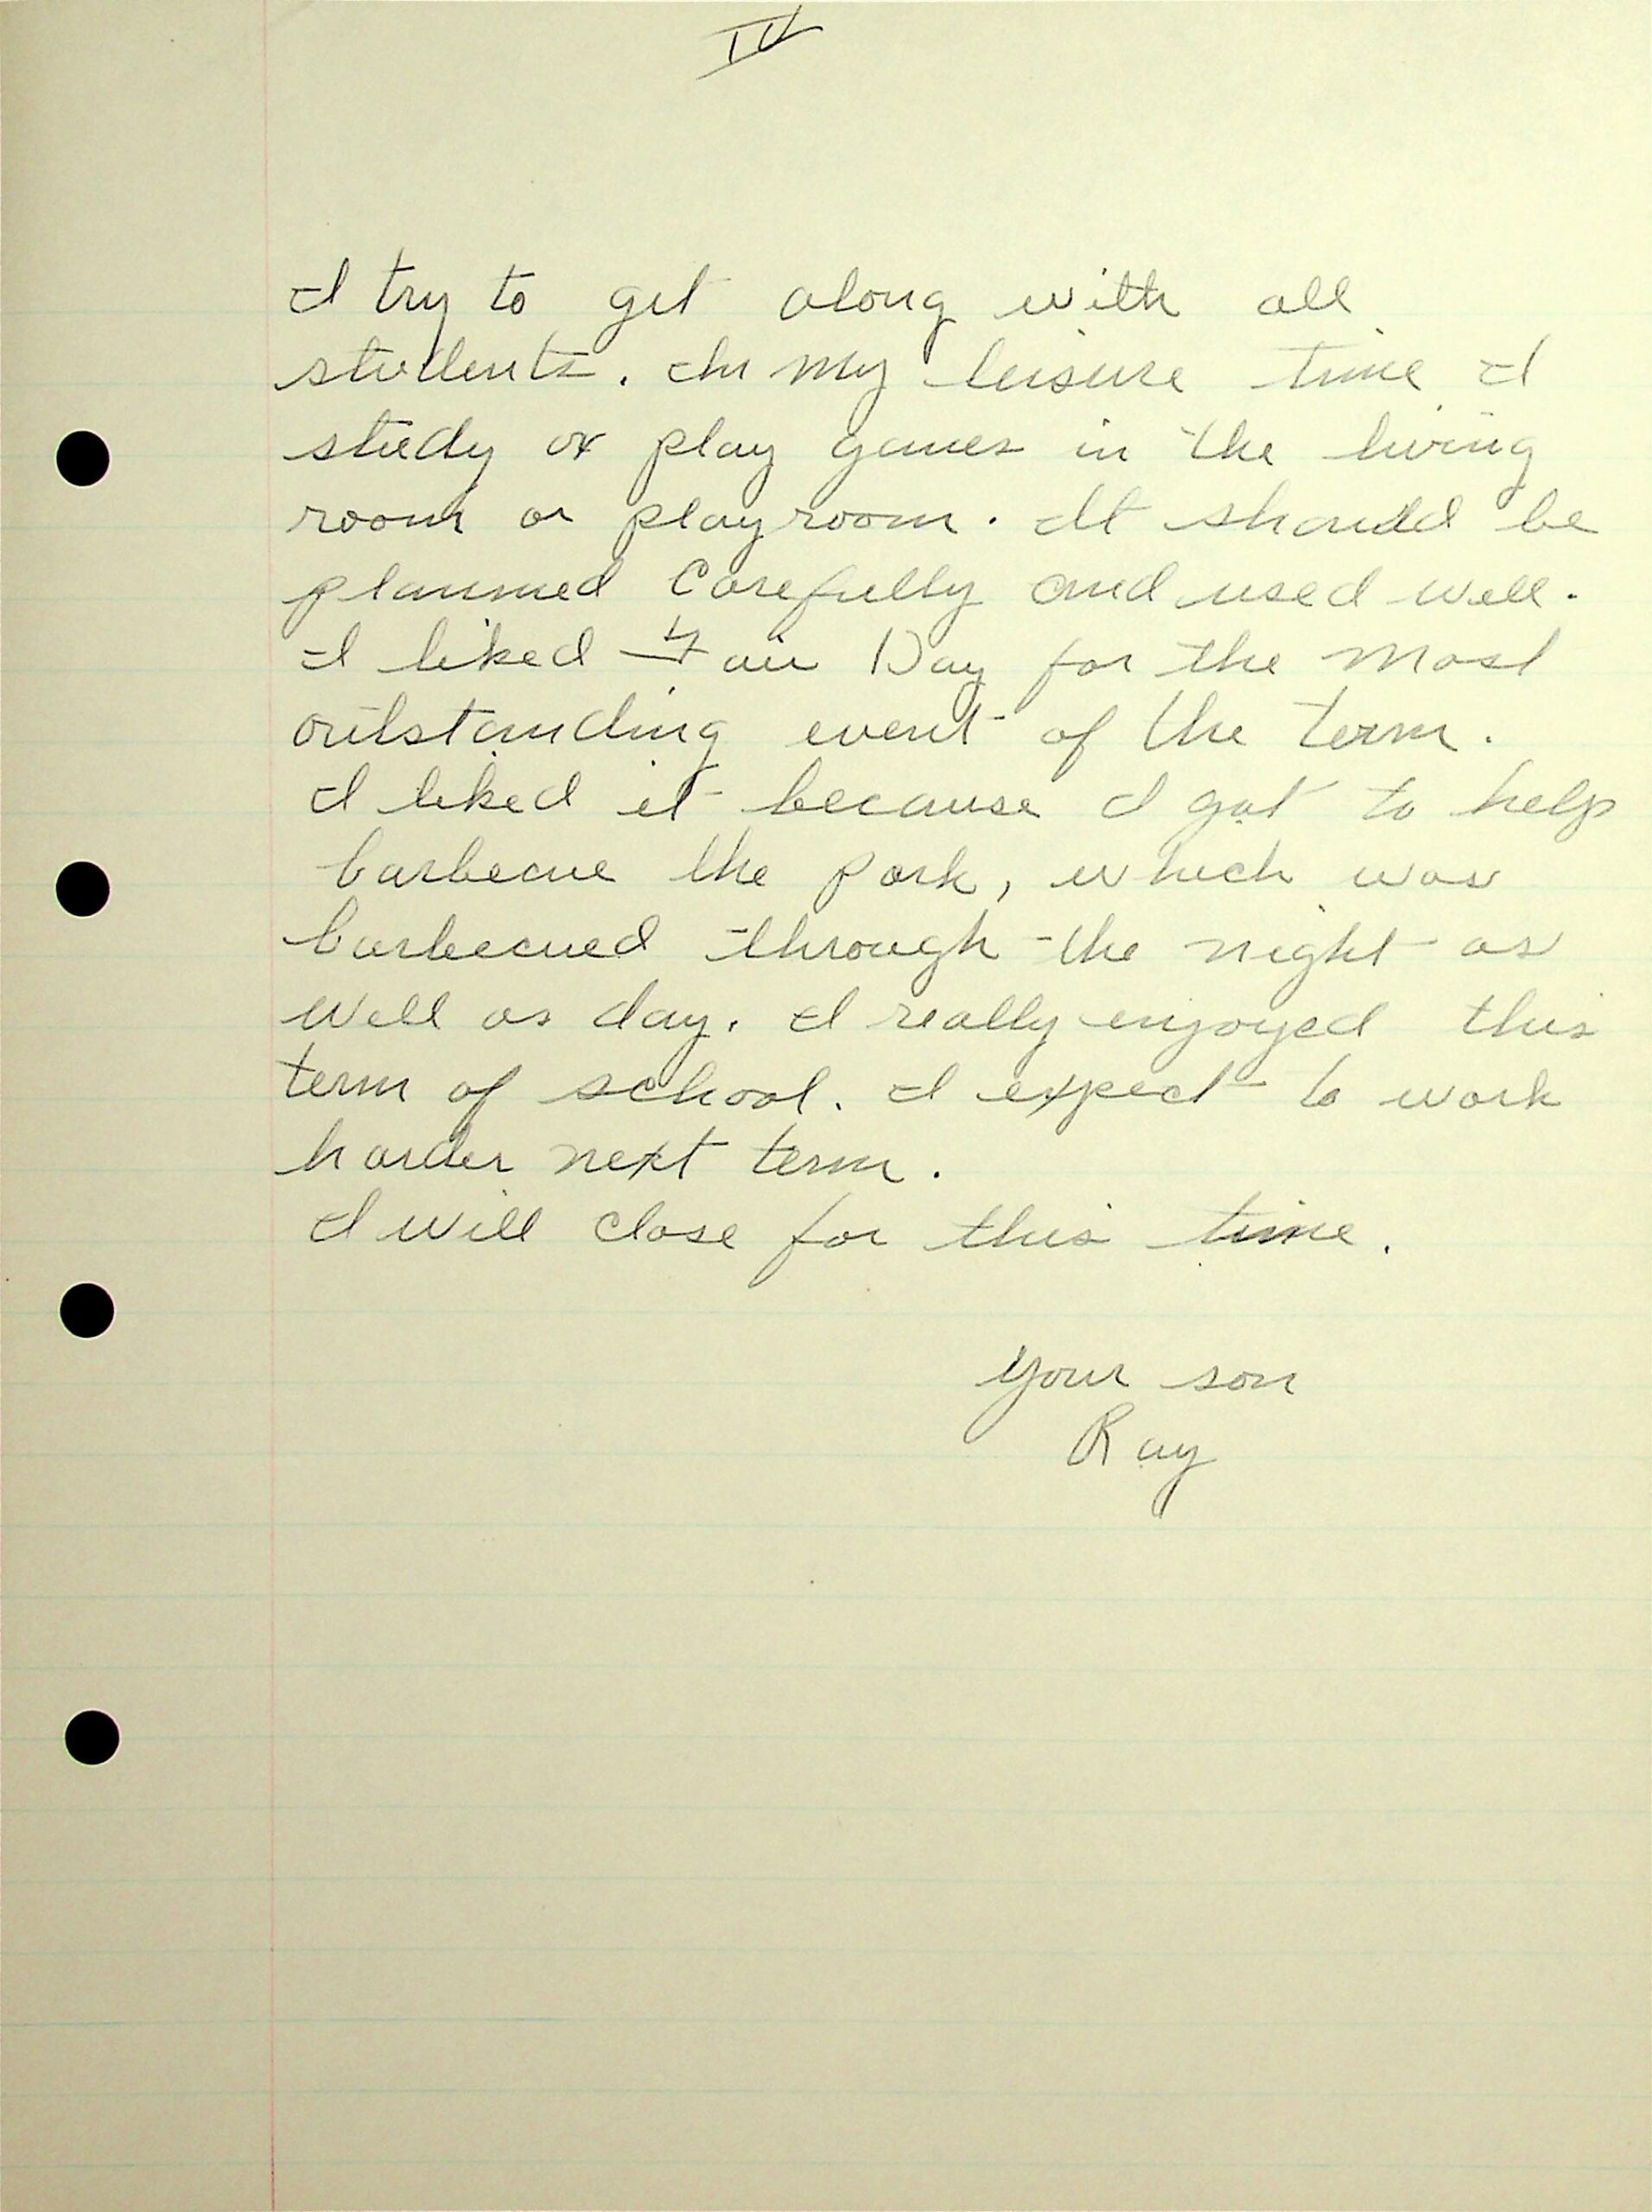 IV
I try to get along with all
students. In my leisure time I
study or play games in the living
room or playroom. It should be
planned carefully and used well.
I liked Fair Day for the most
outstanding event of the term.
I liked it because I got to help
barbecue the pork, which was
barbecued through the night as
well as day. I really enjoyed this
term of school. I expect to work
harder next term.
I will close for this time.
Your son
Ray